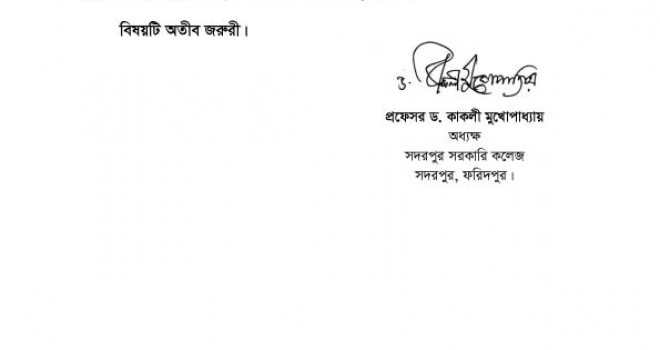 বিষয়টি অতীব জরুরী।
প্রফেসর ড. কাকলী মুখোপাধ্যায়
অধ্যক্ষ
সদরপুর সরকারি কলেজ
সদরপুর, ফরিদপুর।